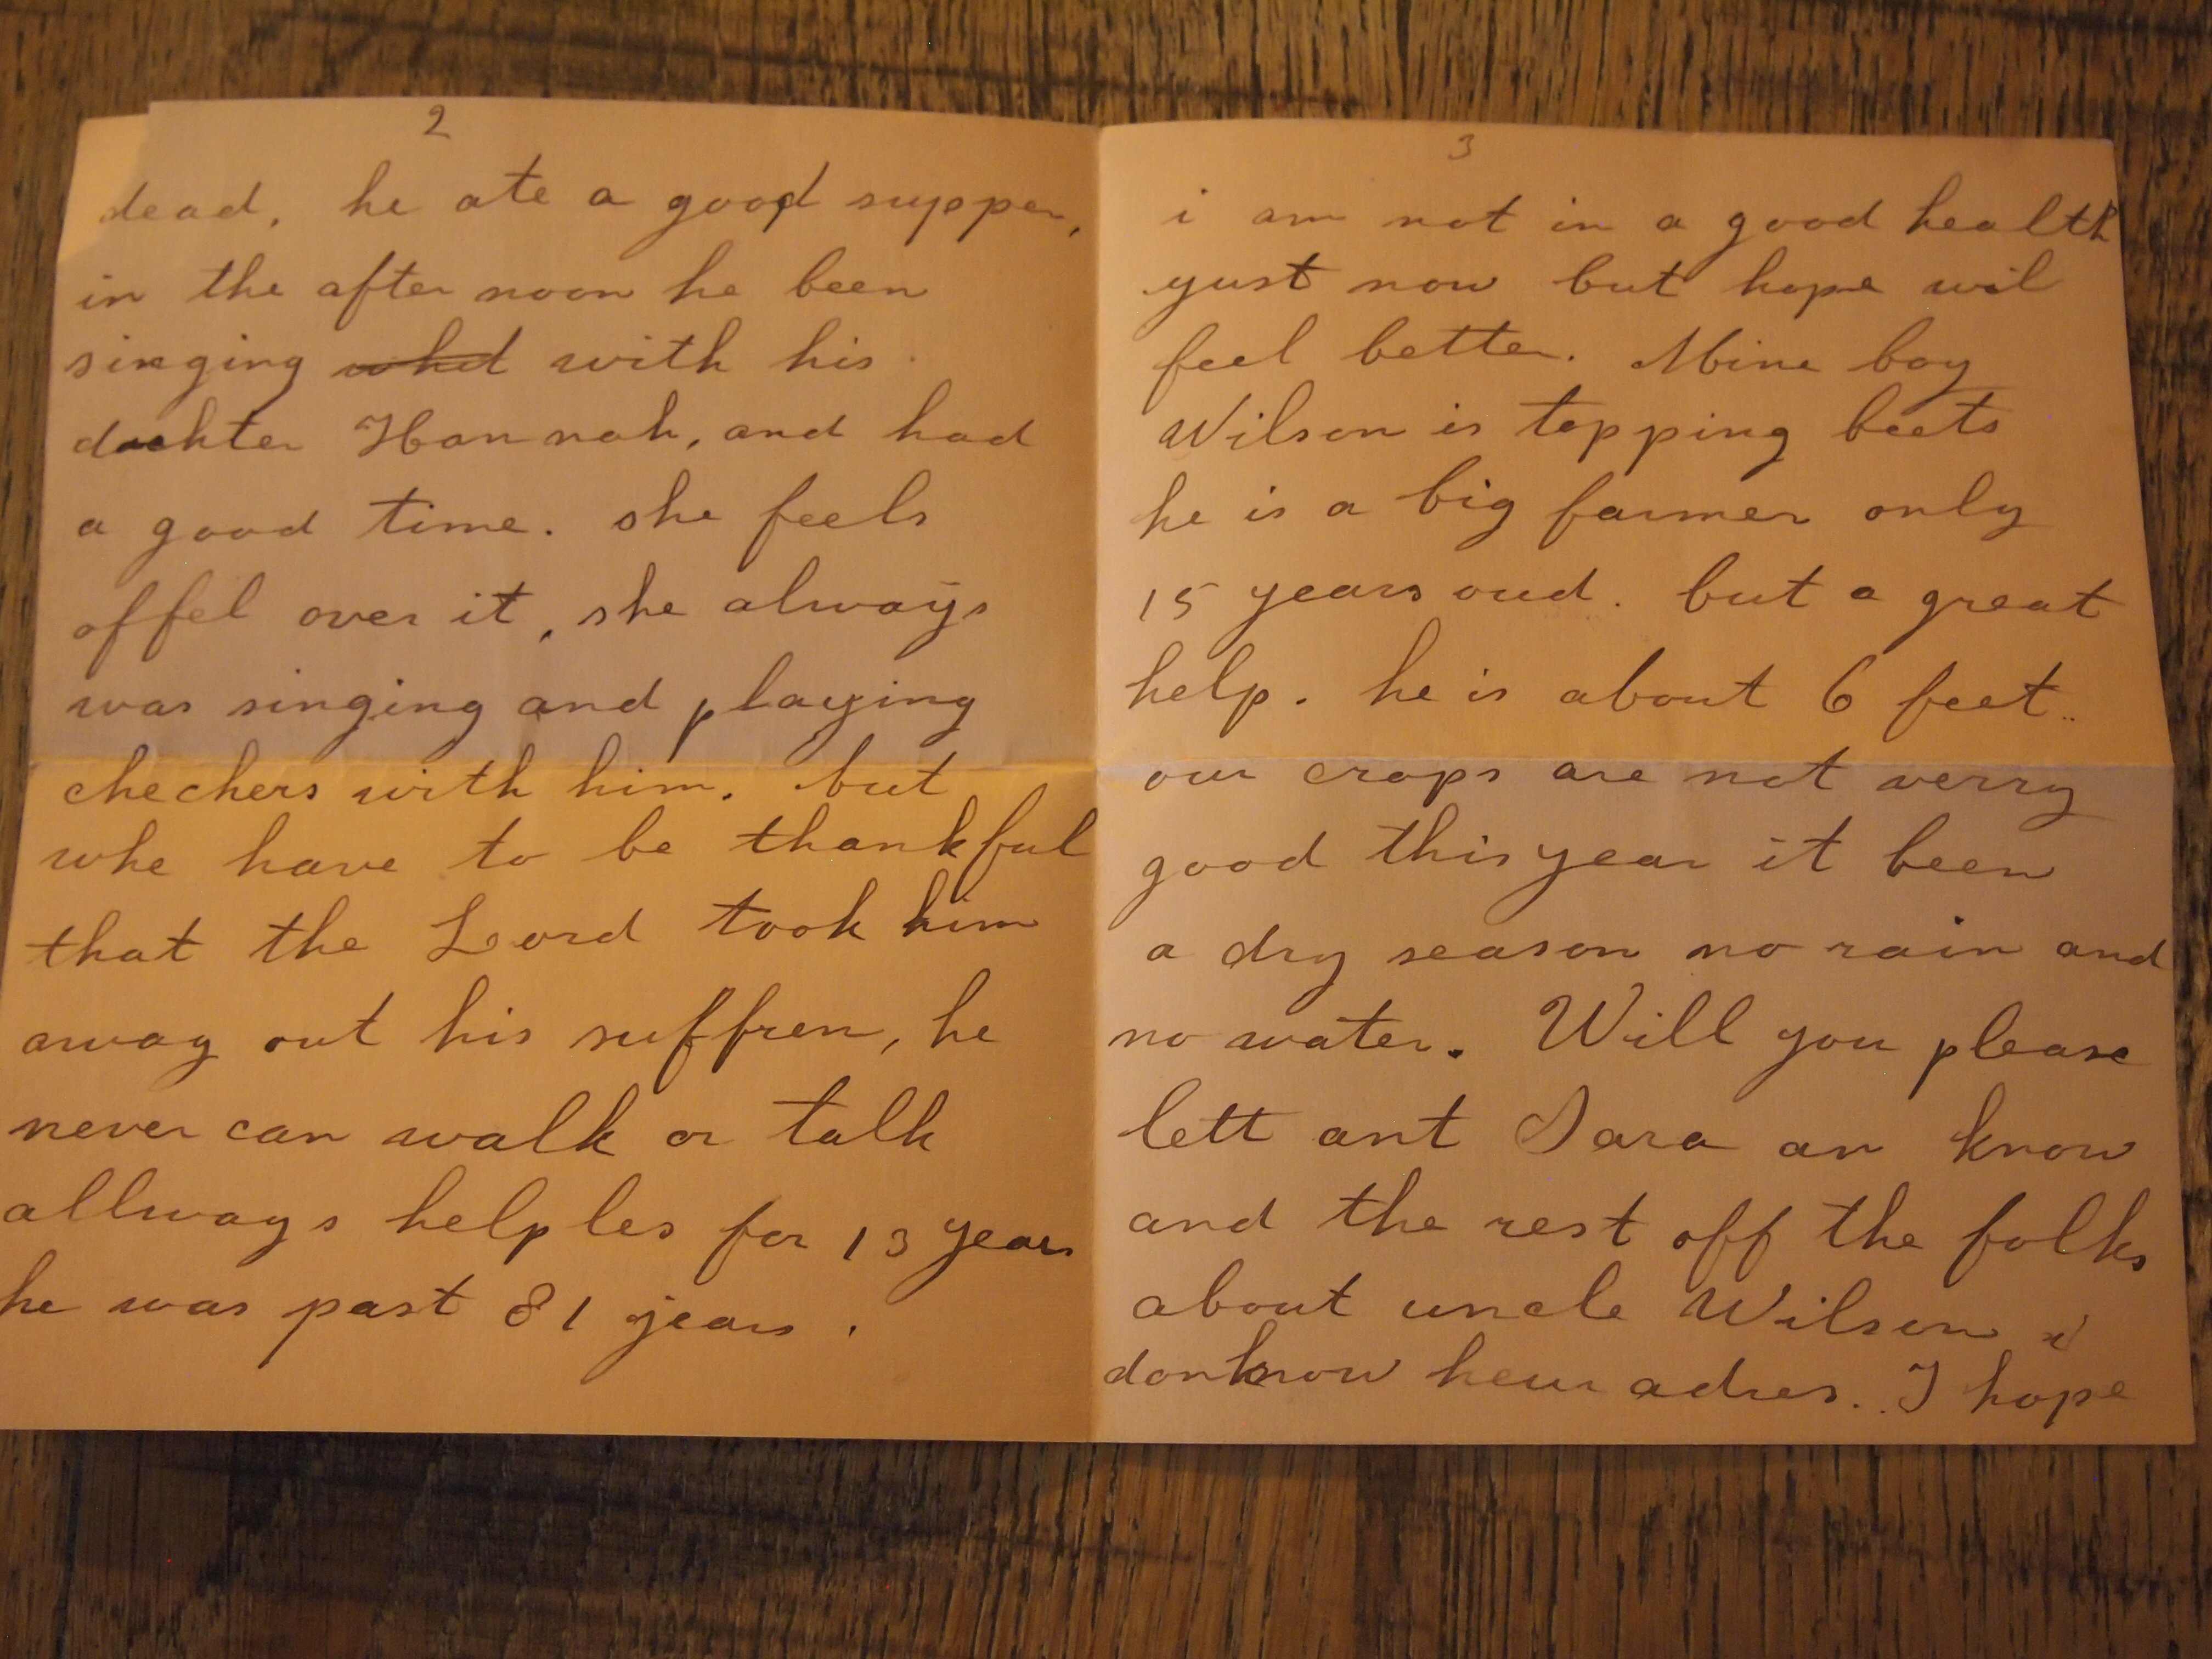 2
dead, he ate a good supper,
in the after noon he been
singing with his
dachter Hannah, and had
a good time. she feels
offel over it, she always
was singing and playing
checkers with him. but
whe have to be thankful
that the Lord took him
away out his suffren, he
never can walk or talk
allways helples for 13 years
he was past 81 jears.
3
i am not in a good health
yust now but hope wil
feel better. Mine boy
Wilson is topping beets
he is a big farmer only
15 years oud. but a great
help. he is about 6 feet..
our crops are not verry
good this year it been
a dry season no rain and
no water. Will you please
lett ant Sara an know
and the rest off the folks
about uncle Wilson i
donknow heur adres.. I hope